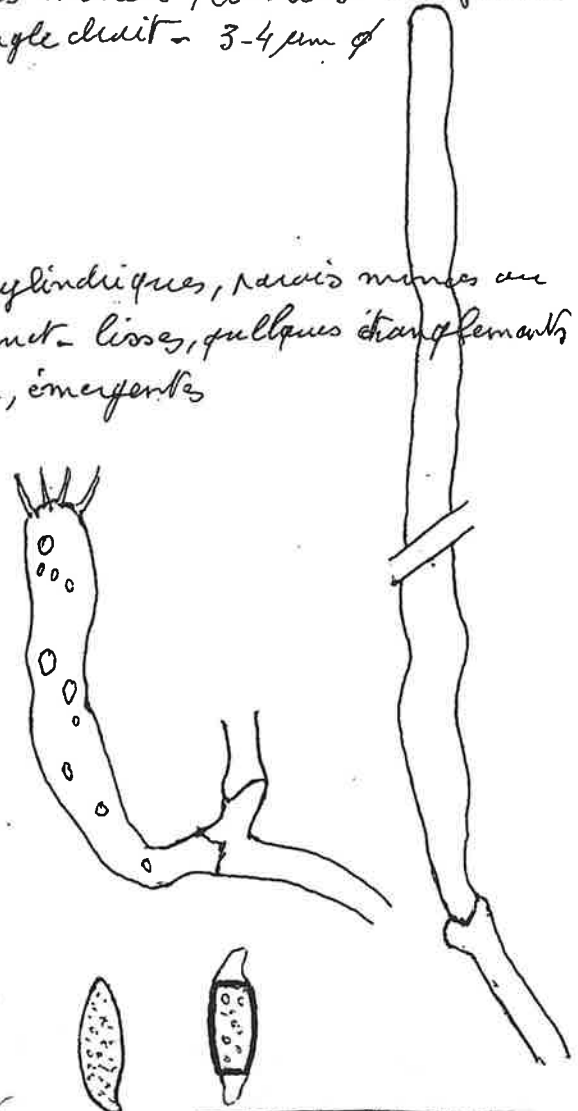 angle droit - 3-4 µm ø
cylindriques, parois minces ou
lisses, quelques étranglements
, émergentes